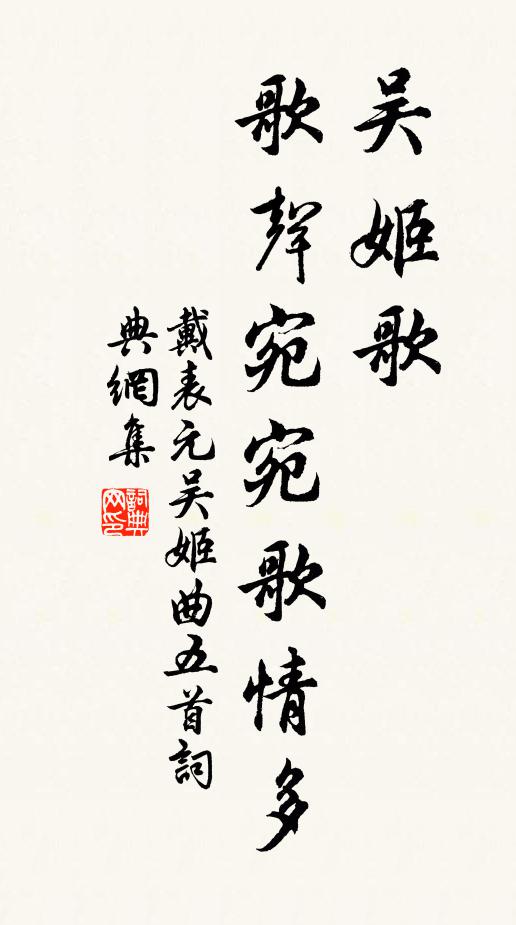 吴姬歌
歌聲宛宛歌情多
戴表元吴姬曲五首詞
典網集
詞典网印